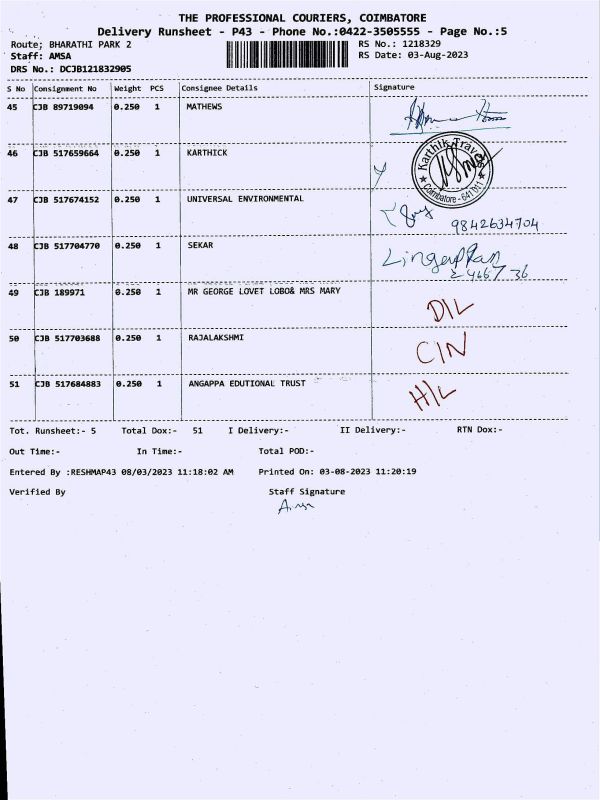 THE PROFESSIONAL COURIERS, COIMBATORE
Delivery Runsheet - P43 - Phone No.:0422-3505555 - Page No.:5
Route; BHARATHI PARK 2 RS No.: 1218329
Staff: AMSA RS Date: 03-Aug-2023
DRS No.: DCJB121832905
S No Consignment No Weight PCS Consignee Details Signature
45 CJB 89719094 0.250 1 MATHEWS
46 CJB 517659664 0.250 1 KARTHICK Karthik Travels Coimbatore - 641 011
47 CJB 517674152 0.250 1 UNIVERSAL ENVIRONMENTAL
9842634704
48 CJB 517704770 0.250 1 SEKAR Lingappan
49 CJB 189971 0.250 1 MR GEORGE LOVET LOBO& MRS MARY D/L
50 CJB 517703688 0.250 1 RAJALAKSHMI C/N
51 CJB 517684883 0.250 1 ANGAPPA EDUTIONAL TRUST H/L
Tot. Runsheet:- 5 Total Dox:- 51 I Delivery:- II Delivery:- RTN Dox:-
Out Time:- In Time:- Total POD:-
Entered By :RESHMAP43 08/03/2023 11:18:02 AM Printed On: 03-08-2023 11:20:19
Verified By Staff Signature